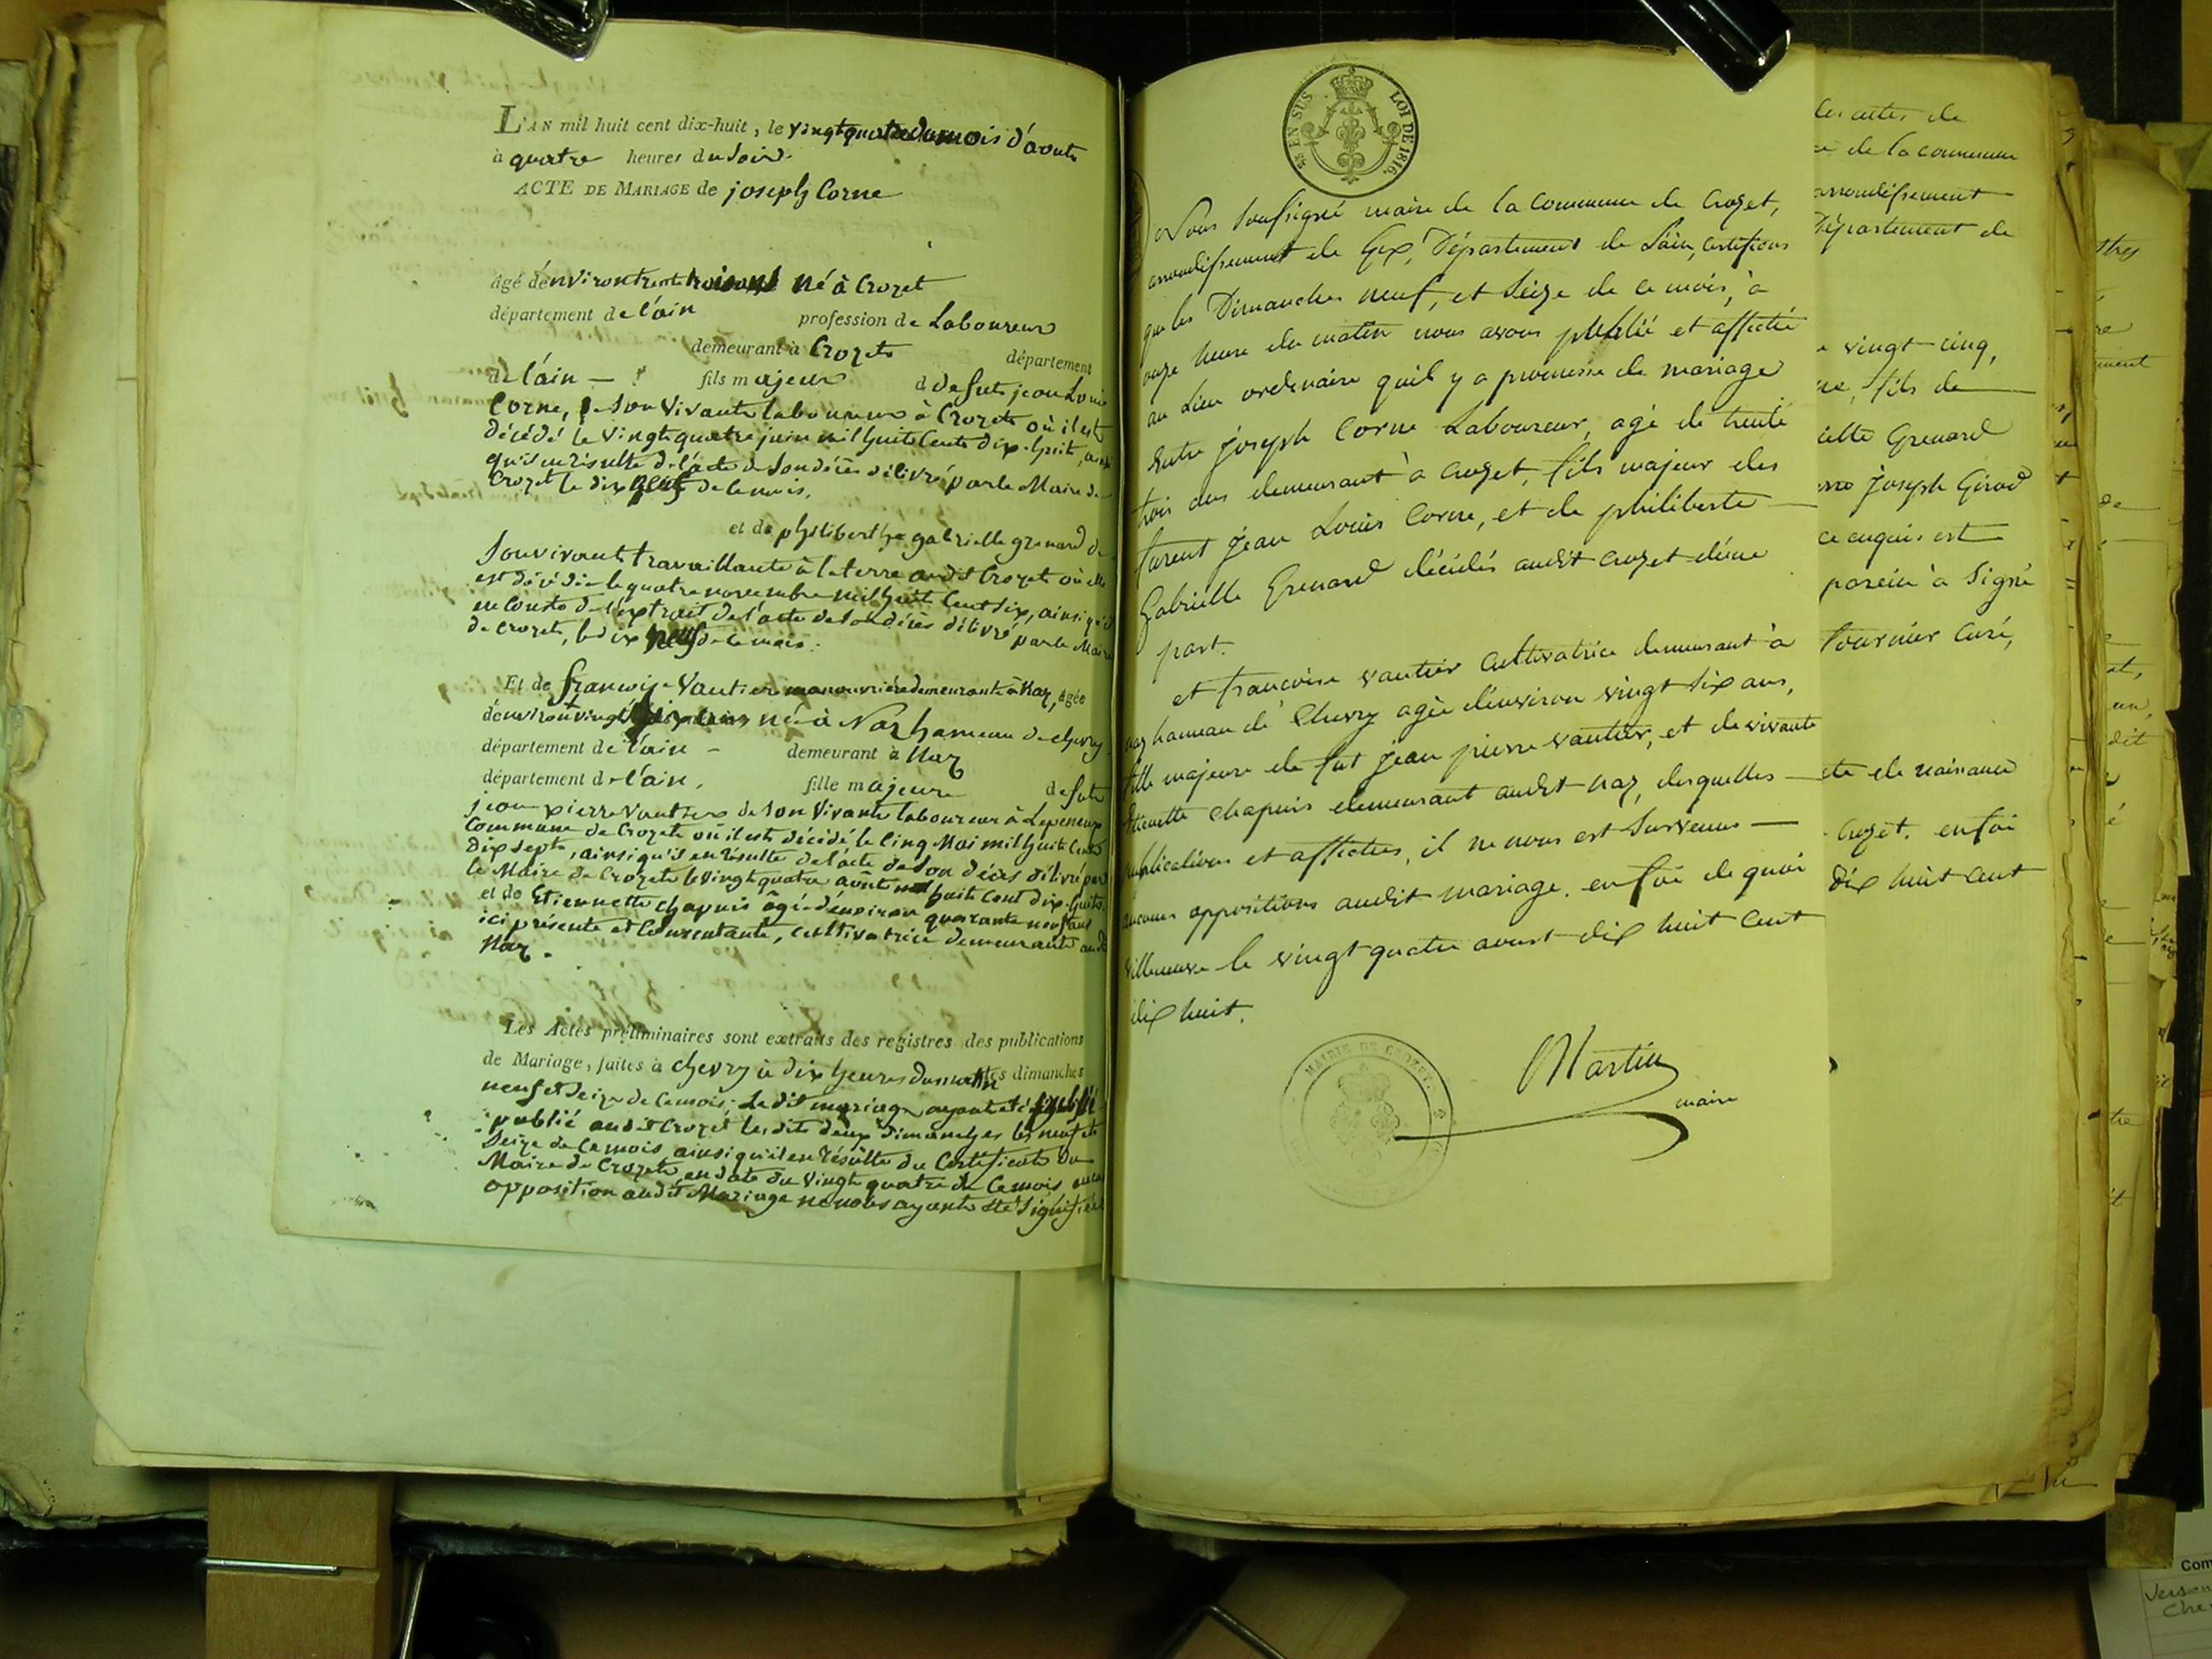 L'AN mil huit cent dix-huit, le vingt quatre du mois d'aout
à quatre heures du Soir.
ACTE DE MARIAGE de joseph Corne
agé d'environ trente trois ans né à Crozet
département de l'ain profession de Laboureur
demeurant à Crozet département
de l'ain fils majeur de feu jean Louis
Corne, de Son Vivant laboureur à Crozet où il est
décédé le vingt quatre juin mil huit Cent dix-huit, ainsi
qu'il en résulte de l'acte de Son décès délivré par le Maire de
Crozet le dix neuf de Ce mois.
et de philiberthe gabrielle grenard de
Son vivant travaillante à la terre audit Crozet où elle
est décédée le quatre novembre mil huit Cent Six, ainsi qu'il
en Conste de l'extrait de l'acte de Son décès délivré par le Maire
de Crozet, le dix neuf de Ce mois.
Et de françoise Vautier manouvrière demeurant à Naz, agée
d'environ vingt née à Naz hameau de chevry
département de l'ain demeurant à Naz
département de l'ain, fille majeure de feu
jean pierre Vautier de Son Vivant laboureur à
Commune de Crozet où il est décédé le Cinq Mai mil huit Cent
dix Sept, ainsi qu'il en résulte de l'acte de Son décès délivré par
le Maire de Crozet le vingt quatre août mil huit Cent dix-huit.
et de Etiennette chapuis âgée d'environ quarante neuf ans
ici présente et Consentante, Cultivatrice demeurante audit
Naz.
Les Actes préliminaires sont extraits des registres des publications
de Mariage, faites à chevry à dix heures du matin les dimanches
neuf et Seize de Ce mois; Le dit mariage ayant été
publié audit Crozet les dits deux Dimanches les neuf et
Seize de Ce mois ainsi qu'il en résulte du Certificat du
Maire de Crozet en date du vingt quatre de Ce mois aucune
opposition audit Mariage ne nous ayant été Signifiée
EN SUS LOI DE 1816.
Nous Soussigné maire de la Commune de Crozet,
arrondissement de Gex, Département de l'ain, certifions
que les Dimanches neuf, et Seize de ce mois, à
onze heure du matin nous avons publié et affiché
au Lieu ordinaire qu'il y a promesse de mariage
Entre Joseph Corne Laboureur, agé de trente
trois ans demeurant à Crozet, fils majeur des
furent Jean Louis Corne, et de philiberte
Gabriélle Grenard décédés audit Crozet d'une
part.
et francoise vautier Cultivatrice demeurant à
naz hameau de Chevry agée d'environ vingt Six ans,
fille majeure de fut Jean pierre vautier, et de vivante
Etienette Chapuis demeurant audit naz, desquelles
publications et affiches, il ne nous est Survenus
aucunes oppositions audit mariage. en foi de quoi
Villeneuve le vingt quatre aoust dix huit Cent
dix huit.
MAIRIE DE CROZET.
Martin
maire
les actes de
de la commune
arrondissement
Département de
vingt-cinq,
fils de
Grenard
Joseph Girod
ce enquis est
parein à Signé
Tournier Curé,
de naisance
Crozet. en foi
dix huit Cent
Com